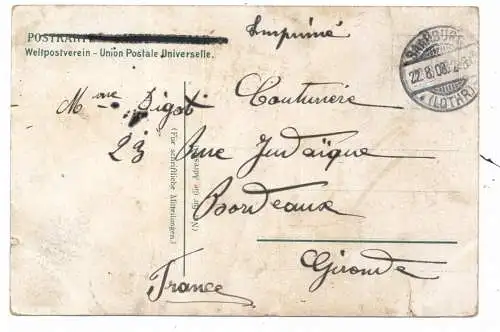 POSTKARTE
Imprimé
Weltpostverein - Union Postale Universelle.
SAARBURG
22.8.08.
*(LOTHR)
Mme Digot Couturière
23 Rue Judaïque
Bordeaux
Gironde
France
(Für schriftliche Mitteilungen.)
(Nur für die Adresse